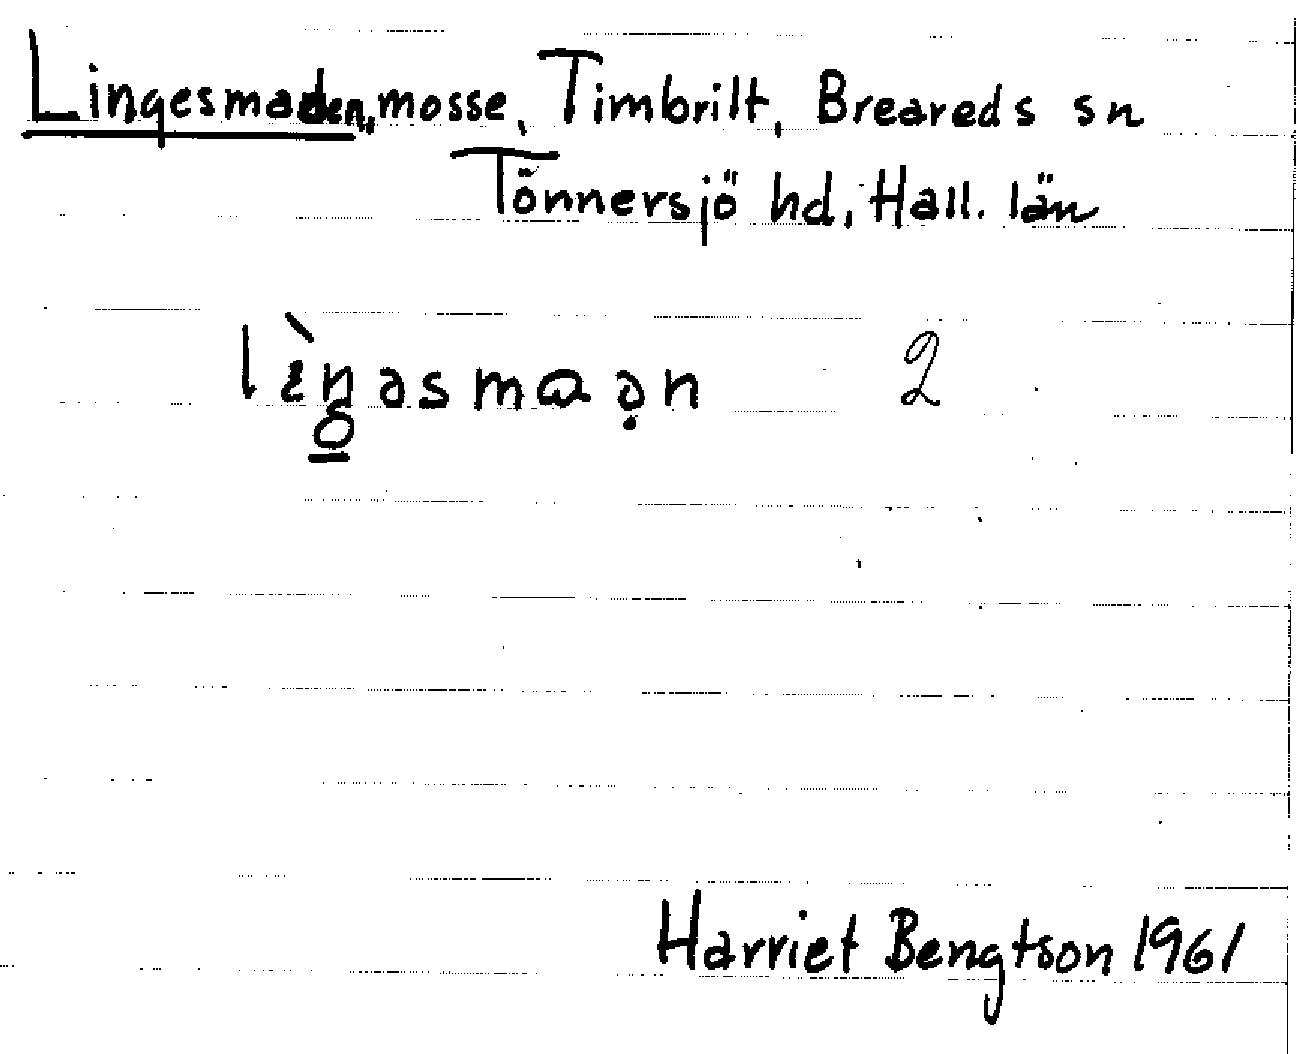 Lingesmaden, mosse, Timbrilt, Breareds sn
Tönnersjö hd, Hall. län
lèŋəsmɑə̣n 2
Harriet Bengtson 1961